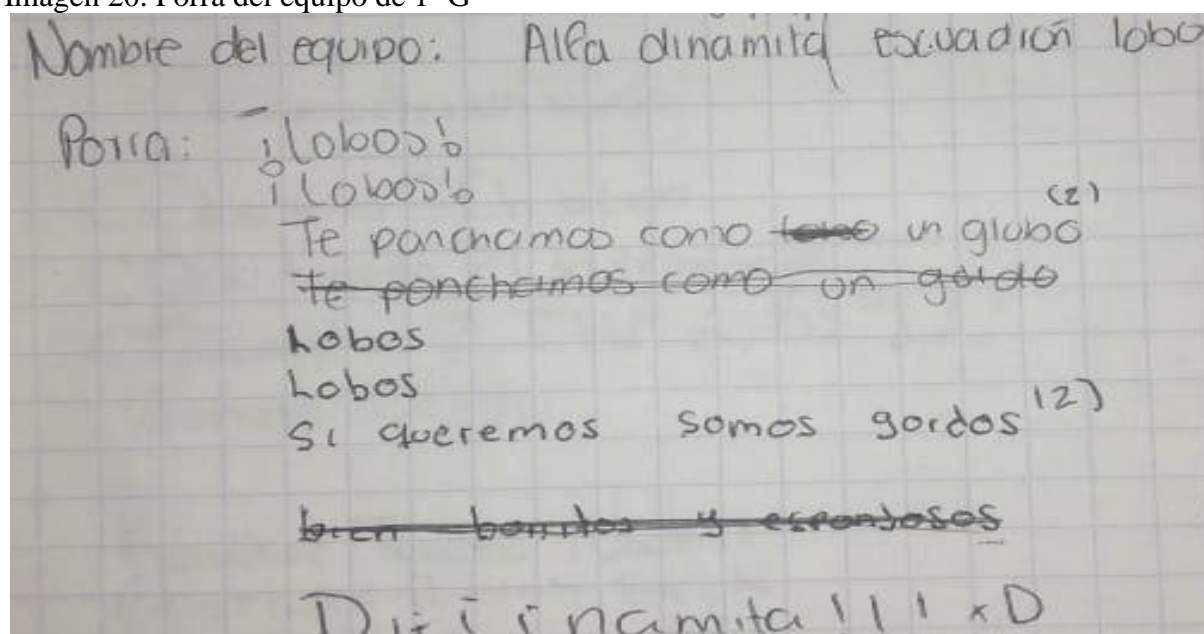 Imagen 20. Porra del equipo de 1° G
Nombre del equipo: Alfa dinamita escuadrón lobo
Porra: ¡lobos!
¡Lobos!
Te ponchamos como un globo (2)
te ponchamos como un gordo
Lobos
Lobos
Si queremos somos gordos (2)
bien bonitos y esponjosos
Diiinamita!!! xD